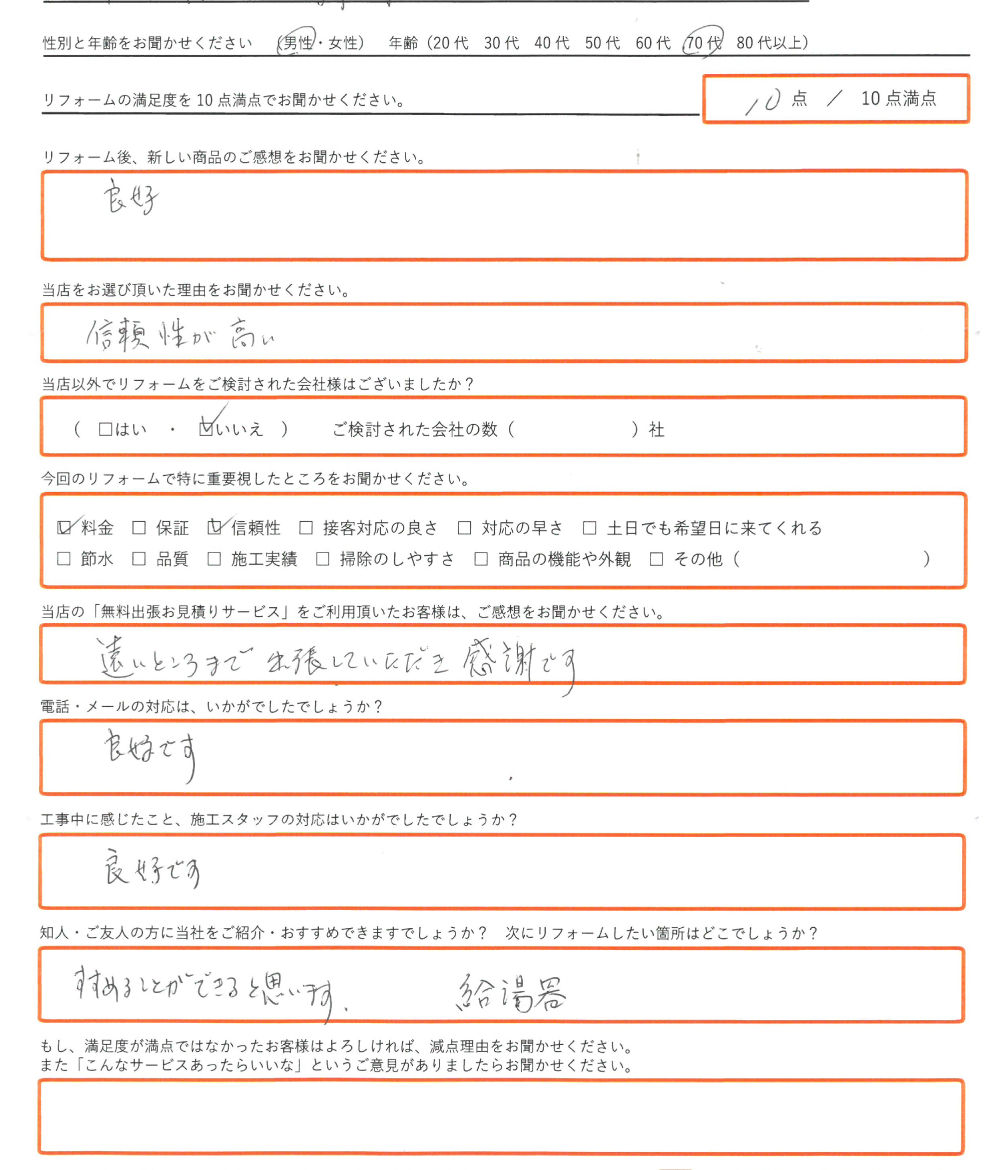 性別と年齢をお聞かせください (男性・女性) 年齢(20代 30代 40代 50代 60代 70代 80代以上)
リフォームの満足度を10点満点でお聞かせください。 10 点 / 10点満点
リフォーム後、新しい商品のご感想をお聞かせください。
良好
当店をお選び頂いた理由をお聞かせください。
信頼性が高い
当店以外でリフォームをご検討された会社様はございましたか?
( □はい ・ ☑いいえ ) ご検討された会社の数( )社
今回のリフォームで特に重要視したところをお聞かせください。
☑ 料金 □ 保証 ☑ 信頼性 □ 接客対応の良さ □ 対応の早さ □ 土日でも希望日に来てくれる
□ 節水 □ 品質 □ 施工実績 □ 掃除のしやすさ □ 商品の機能や外観 □ その他( )
当店の「無料出張お見積りサービス」をご利用頂いたお客様は、ご感想をお聞かせください。
遠いところまで出張していただき感謝です
電話・メールの対応は、いかがでしたでしょうか?
良好です
工事中に感じたこと、施工スタッフの対応はいかがでしたでしょうか?
良好です
知人・ご友人の方に当社をご紹介・おすすめできますでしょうか? 次にリフォームしたい箇所はどこでしょうか?
すすめることができると思います. 給湯器
もし、満足度が満点ではなかったお客様はよろしければ、減点理由をお聞かせください。
また「こんなサービスあったらいいな」というご意見がありましたらお聞かせください。